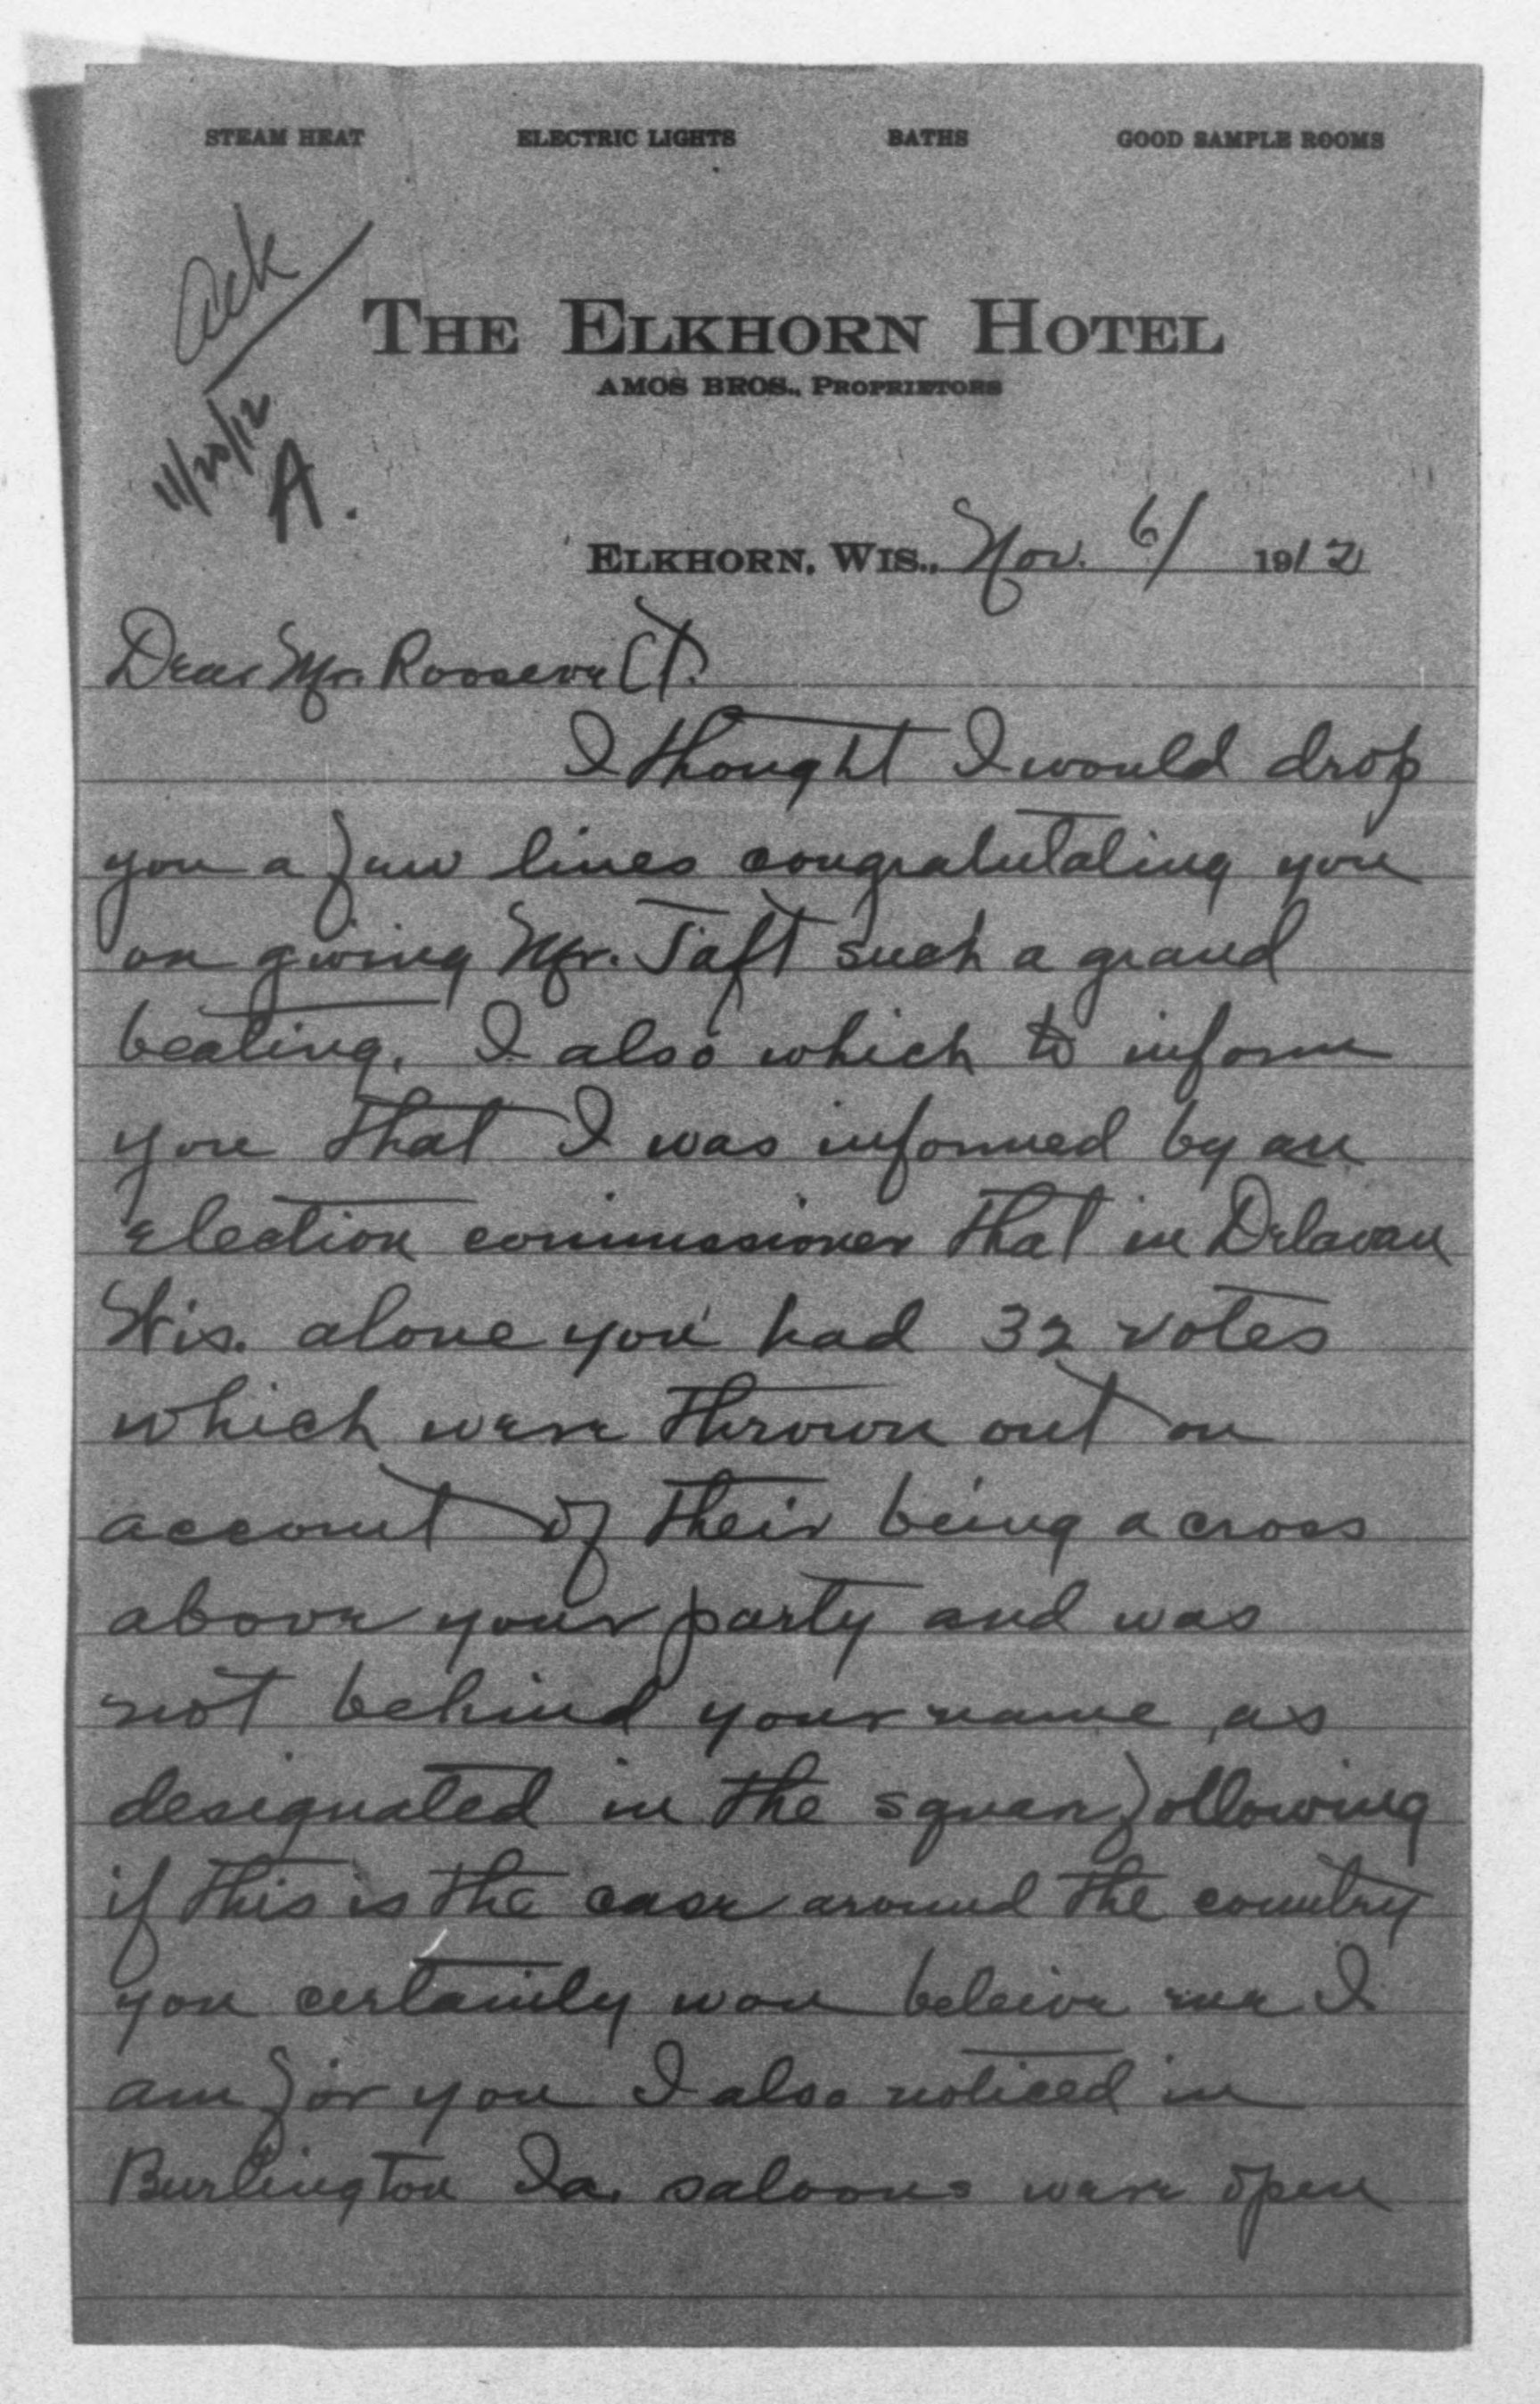 STEAM HEAT ELECTRIC LIGHTS BATHS GOOD SAMPLE ROOMS
Ack
11/20/12
A.
THE ELKHORN HOTEL
AMOS BROS., PROPRIETORS
ELKHORN, WIS., Nov. 6/ 1912
Dear Mr. Roosevelt.
I thought I would drop
you a few lines congratulating you
on giving Mr. Taft such a grand
beating. I also which to inform
you that I was informed by an
election commissioner that in Delavan
Wis. alone you had 32 votes
which were thrown out on
account of their being a cross
above your party and was
not behind your name, as
designated in the square following
if this is the case around the country
you certainly won beleive me I
am for you I also noticed in
Burlington Ia. saloons were open